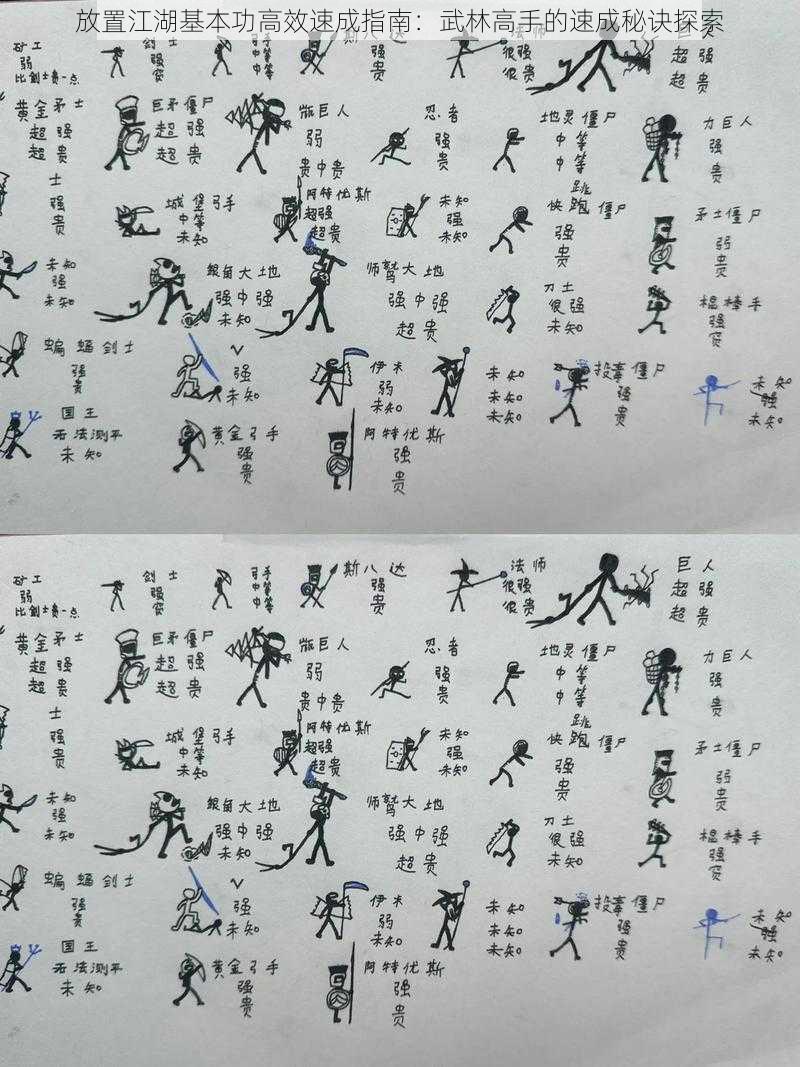 放置江湖基本功高效速成指南：武林高手的速成秘诀探索
矿工
弱
比剑士贵一点
强
贫
中等
中等
斯八达
强
贵
法师
很强
很贵
巨人
超强
超贵
黄金矛士
超强
超贵
巨矛僵尸
超强
超贵
巨人
弱
贵中贵
忍者
强
贵
地灵僵尸
中等
中等
力巨人
强
贵
士
强
贵
城堡弓手
中等
未知
阿特优斯
超强
超贵
未知
强
未知
跳
快跑僵尸
强
贵
矛士僵尸
弱
贵
未知
强
未知
银角大地
强中强
未知
师鹫大地
强中强
超贵
刀士
很强
未知
棍棒手
强
贫
蝙蝠剑士
强
贵
V
强
未知
伊木
弱
未知
未知
未知
未知
投毒僵尸
强
贵
未知
强
未知
国王
无法测平
未知
黄金弓手
强
贵
阿特优斯
强
贵
矿工
弱
比剑士贵一点
剑士
强
贫
弓手
中等
中等
斯八达
强
贵
法师
很强
很贵
巨人
超强
超贵
黄金矛士
超强
超贵
巨矛僵尸
超强
超贵
巨人
弱
贵中贵
忍者
强
贵
地灵僵尸
中等
中等
力巨人
强
贵
士
强
贵
城堡弓手
中等
未知
阿特优斯
超强
超贵
未知
强
未知
跳
快跑僵尸
强
贵
矛士僵尸
弱
贵
未知
强
未知
银角大地
强中强
未知
师鹫大地
强中强
超贵
刀士
很强
未知
棍棒手
强
贫
蝙蝠剑士
强
贵
V
强
未知
伊木
弱
未知
未知
未知
未知
投毒僵尸
强
贵
未知
强
未知
国王
无法测平
未知
黄金弓手
强
贵
阿特优斯
强
贵